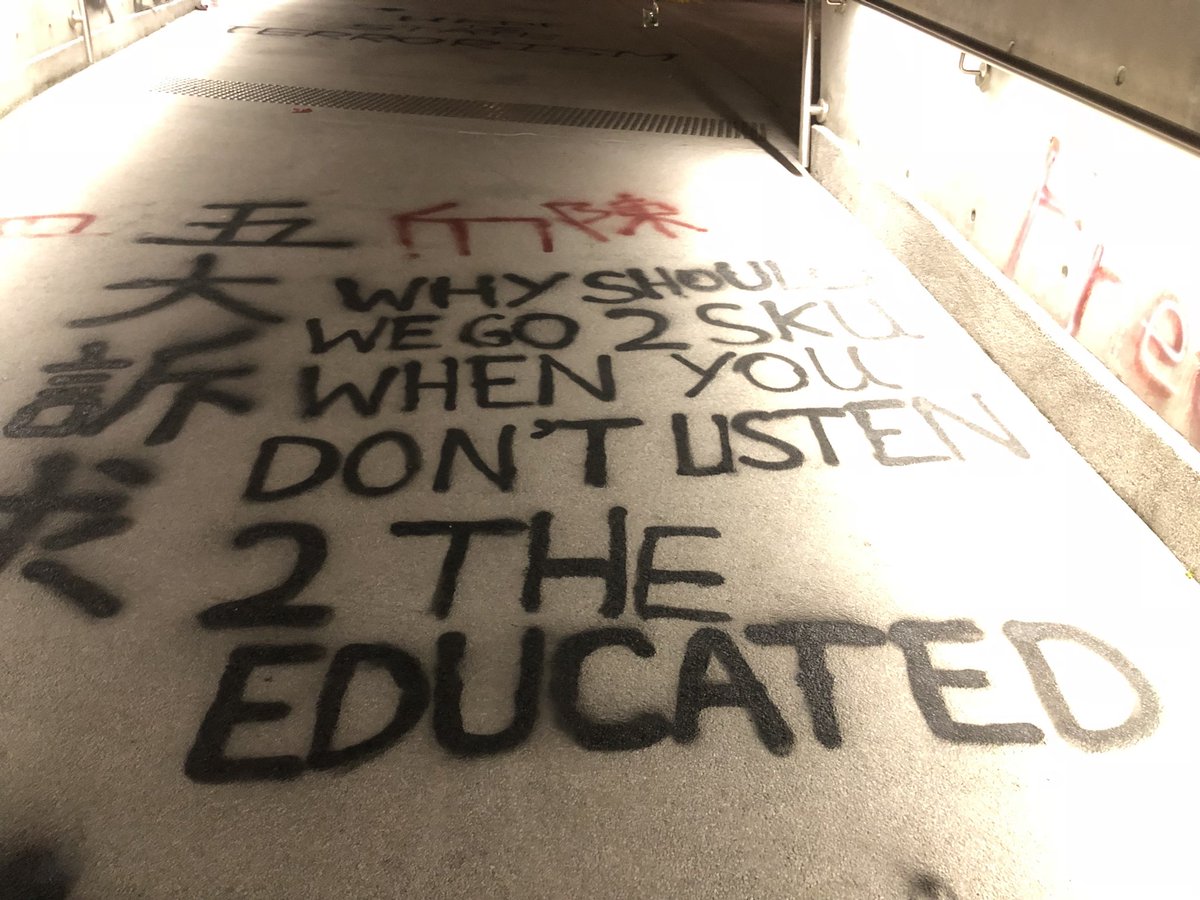 TERRORISM
五
大
訴
WHY SHOULD
WE GO 2 SKU
WHEN YOU
DON'T LISTEN
2 THE
EDUCATED
陳
Fre